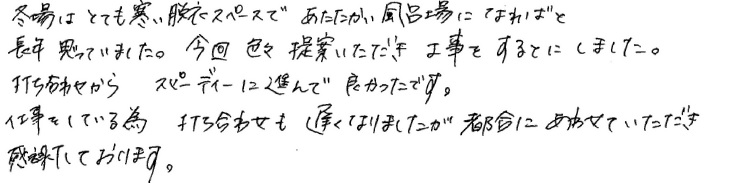 冬場はとても寒い脱衣スペースで あたたかい風呂場になればと
長年 思っていました。今回 色々 提案いただき 工事をするとにしました。
打ち合わせから スピーディーに進んで 良かったです。
仕事をしている為 打ち合わせも 遅くなりましたが 都合に あわせていただき
感謝しております。